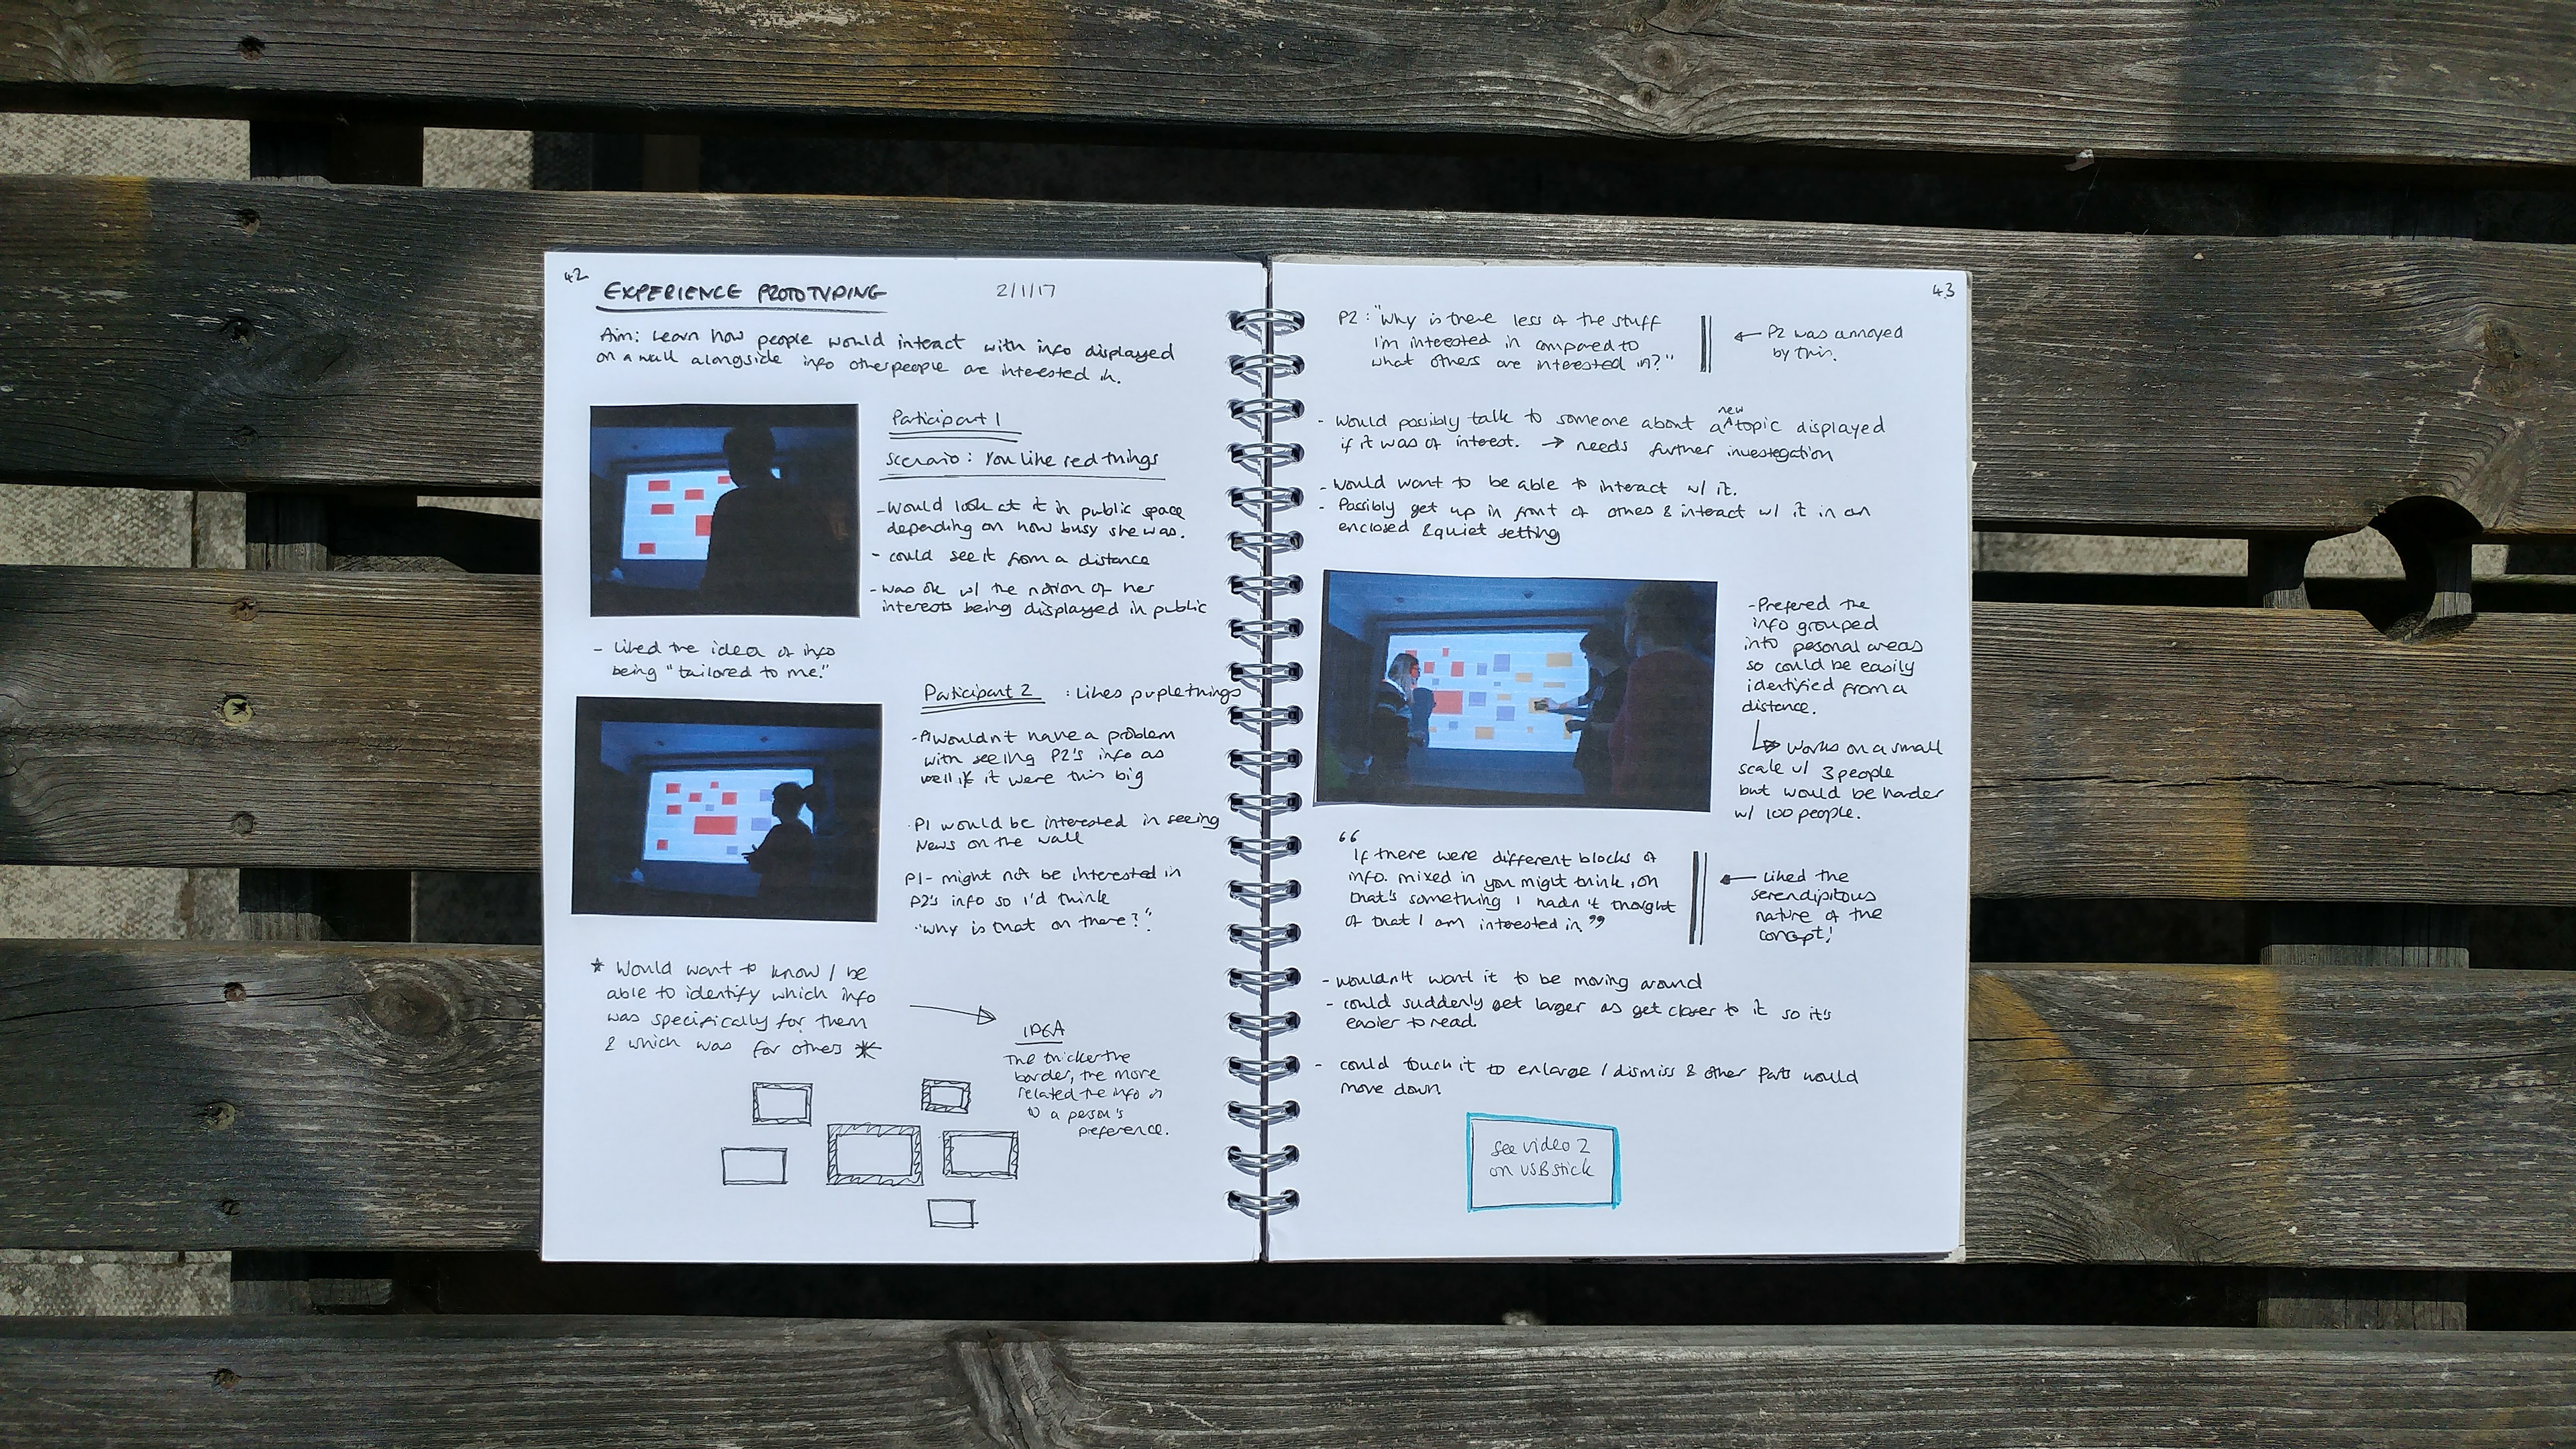 42
EXPERIENCE PROTOTYPING
2/1/17
Aim: Learn how people would interact with info displayed
on a wall alongside info other people are interested in.
Participant 1
Scenario: You like red things
- Would look at it in public space
depending on how busy she was.
- could see it from a distance
- was ok w/ the notion of her
interests being displayed in public
- Liked the idea of info
being "tailored to me."
Participant 2 : Likes purple things
- P1 wouldn't have a problem
with seeing P2's info as
well if it were this big
P1 would be interested in seeing
News on the wall
P1 - might not be interested in
P2's info so I'd think
"why is that on there?".
* Would want to know / be
able to identify which info
was specifically for them
& which was for others *
IDEA
The thicker the
border, the more
related the info is
to a person's
preference.
43
P2: "Why is there less of the stuff
I'm interested in compared to
what others are interested in?"
← P2 was annoyed
by this.
- Would possibly talk to someone about a new topic displayed
if it was of interest. → needs further investegation
- Would want to be able to interact w/ it.
- Possibly get up in front of others & interact w/ it in an
enclosed & quiet setting
- Prefered the
info grouped
into personal areas
so could be easily
identified from a
distance.
↳ works on a small
scale w/ 3 people
but would be harder
w/ 100 people.
"
If there were different blocks of
info. mixed in you might think, oh
that's something I hadn't thought
of that I am interested in"
← Liked the
serendipitous
nature of the
concept!
- wouldn't want it to be moving around
- could suddenly get larger as get closer to it so it's
easier to read.
- could touch it to enlarge / dismiss & other parts would
move down.
see video 2
on USB stick